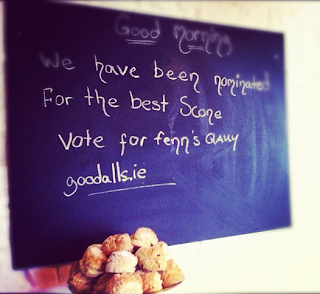 Good morning
We have been nominated
For the best Scone
Vote for fenn's QAUY
goodalls.ie